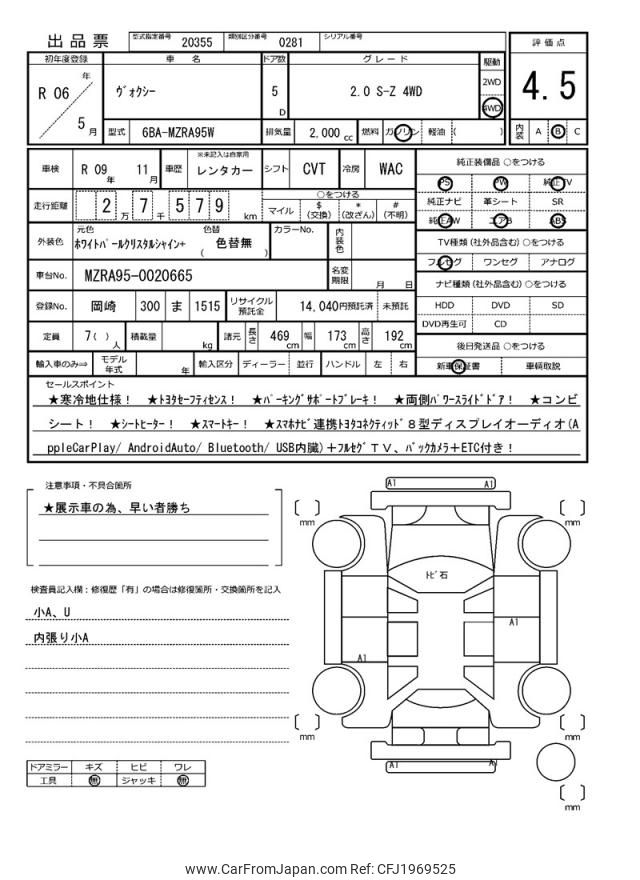 出品票 型式指定番号 20355 類別区分番号 0281 シリアル番号
評価点
4.5
内装 A B C
初年度登録 車名 ドア数 グレード 駆動
R 06 年 5 月
ヴォクシー 5 D 2.0 S-Z 4WD
2WD
4WD
型式 6BA-MZRA95W 排気量 2,000 cc 燃料 ガソリン 軽油 ( )
車検 R 09 年 11 月 車歴 ※未記入は自家用 レンタカー シフト CVT 冷房 WAC
走行距離 2 万 7 千 5 7 9 km
○をつける
マイル $ (交換) * (改ざん) # (不明)
外装色 元色 ホワイトパールクリスタルシャイン+ 色替 ( 色替無 ) カラーNo. 内装色
車台No. MZRA95-0020665 名変期限 月 日
登録No. 岡崎 300 ま 1515 リサイクル預託金 14,040円預託済 未預託
定員 7( ) 人 積載量 kg 諸元 長さ 469 cm 幅 173 cm 高さ 192 cm
輸入車のみ⇒ モデル年式 年 輸入区分 ディーラー 並行 ハンドル 左 右
純正装備品 ○をつける
PS PW 純正TV
純正ナビ 革シート SR
純正AW エアB ABS
TV種類 (社外品含む) ○をつける
フルセグ ワンセグ アナログ
ナビ種類 (社外品含む) ○をつける
HDD DVD SD
DVD再生可 CD
後日発送品 ○をつける
新車保証書 車輌取説
セールスポイント
★寒冷地仕様! ★トヨタセーフティセンス! ★パーキングサポートブレーキ! ★両側パワースライドドア! ★コンビ
シート! ★シートヒーター! ★スマートキー! ★スマホナビ連携トヨタコネクティッド8型ディスプレイオーディオ(A
ppleCarPlay/ AndroidAuto/ Bluetooth/ USB内臓)+フルセグTV、バックカメラ+ETC付き!
注意事項・不具合箇所
★展示車の為、早い者勝ち
検査員記入欄:修復歴「有」の場合は修復箇所・交換箇所を記入
小A、U
内張り小A
ドアミラー キズ ヒビ ワレ
工具 無 ジャッキ 無
A1 A1
mm mm
トビ石
A1
A1
mm mm
A1 A
mm
www.CarFromJapan.com Ref: CFJ1969525